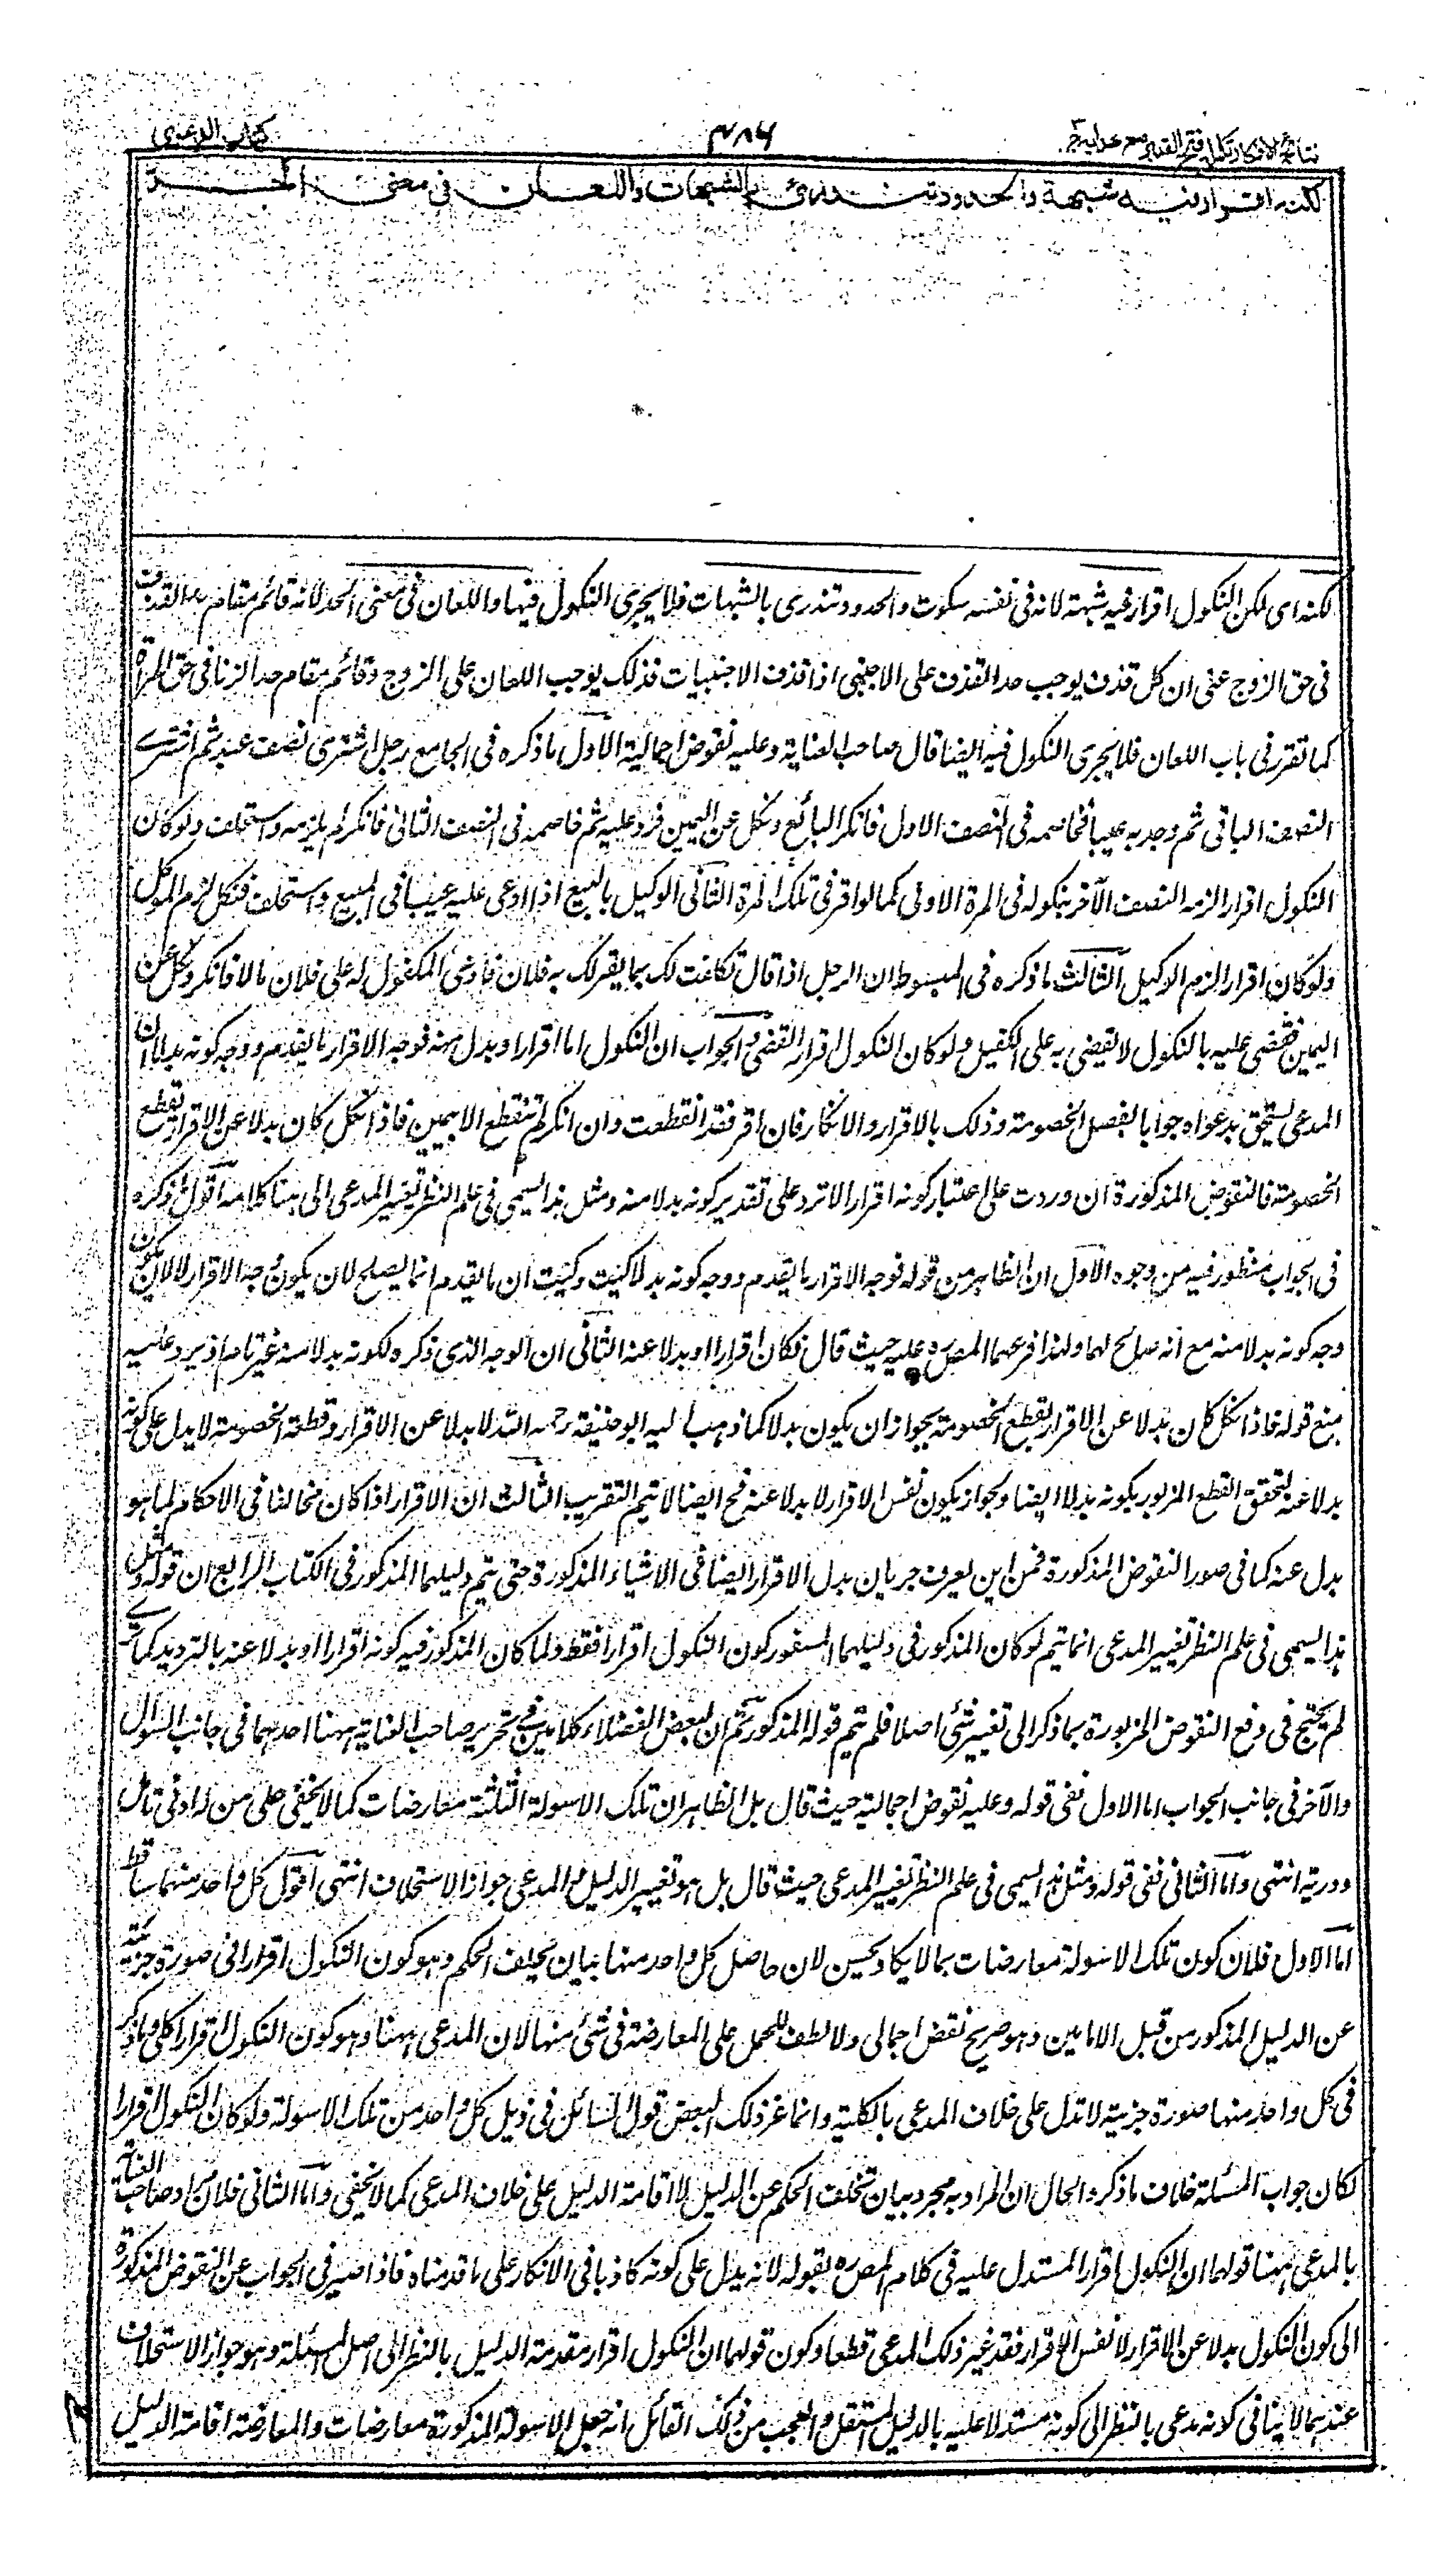 نتائج الافكار تكملة فتح القدير مع هداية ج
٧٨٦
كتاب الدعوى
لكنه اقرار فيه شبهة والحدود تندرئ بالشبهات واللعان في معنى الحد
لكنه اى لكن النكول اقرار فيه شبهة لانه فى نفسه سكوت والحدود تندرى بالشبهات فلا يجرى النكول فيها واللعان فى معنى الحد لانه قائم مقام حد القذف
فى حق الزوج عنى ان كل قذف يوجب حد القذف على الاجنبى اذا قذف الاجنبيات فذلك يوجب اللعان على الزوج وقائم مقام حد الزنا فى حق المرأة
كما تقرر فى باب اللعان فلا يجرى النكول فيه ايضا قال صاحب العناية وعليه نقوض اجمالية الاول ما ذكره فى الجامع رجل اشترى نصف عبد ثم اشترى
النصف الباقى ثم وجد به عيبا فخاصمه فى النصف الاول فانكر البائع ونكل عن اليمين فرد عليه ثم خاصمه فى النصف الثانى فانكر لم يلزمه واستحلف ولو كان
النكول اقرارا لزمه النصف الآخر بنكوله فى المرة الاولى كما لو اقر فى تلك المرة الثانى الوكيل بالبيع اذا ادعى عليه عيب فى المبيع واستحلف فنكل لزم الموكل
ولو كان اقرارا لزم الوكيل الثالث ما ذكره فى المبسوط ان الرجل اذا قال تكفلت لك بما يقر لك به فلان فادعى المكفول له على فلان مالا فانكر ونكل عن
اليمين فقضى عليه بالنكول لا يقضى به على الكفيل ولو كان النكول اقرارا لقضى والجواب ان النكول اما اقرار او بدل منه فوجه الاقرار ما تقدم ووجه كونه بدلا ان
المدعى يستحق بدعواه جوابا يفصل الخصومة وذلك بالاقرار والانكار فان اقر فقد انقطعت وان انكر لم تنقطع الا بيمين فاذا نكل كان بدلا عن الاقرار بقطع
الخصومة فالنقوض المذكورة ان وردت على اعتبار كونه اقرارا لا ترد على تقدير كونه بدلا منه ومثل هذا يسمى فى علم النظر تغيير المدعى الى هنا كلامه اقول ما ذكره
فى الجواب منظور فيه من وجوه الاول ان الظاهر من قوله فوجه الاقرار ما تقدم ووجه كونه بدلا كيت وكيت ان ما تقدم انما يصلح لان يكون وجه الاقرار لا لان يكون
وجه كونه بدلا منه مع انه صالح لهما ولذا فرعهما المصره عليه حيث قال فكان اقرارا او بدلا عنه الثانى ان الوجه الذى ذكره لكونه بدلا منه غير تام اذ يرد عليه
منع قوله فاذا نكل كان بدلا عن الاقرار بقطع الخصومة بجواز ان يكون بدلا كما ذهب اليه ابو حنيفة رحمه الله لا بدلا عن الاقرار وقطعه الخصومة لا يدل على كونه
بدلا عنه لتحقق القطع المزبور بكونه بدلا ايضا وبجواز يكون نفس الاقرار لا بدلا عنه فح ايضا لا يتم التقريب الثالث ان الاقرار اذا كان مخالفا فى الاحكام لما هو
بدل عنه كما فى صور النقوض المذكورة فمن اين يعرف جريان بدل الاقرار ايضا فى الاشياء المذكورة حتى يتم دليلهما المذكور فى الكتاب الرابع ان قوله ومثل
هذا يسمى فى علم النظر تغيير المدعى انما يتم لو كان المذكور فى دليلهما المسفور كون النكول اقرارا فقط ولما كان المذكور فيه كونه اقرارا او بدلا عنه بالترديد كما ترى
لم يحتج فى دفع النقوض المزبورة بما ذكر الى تغيير شئ اصلا فلم يتم قوله المذكور ثم ان لبعض الفضلاء كلامين فى تحرير صاحب العناية ههنا احدهما فى جانب السؤال
والآخر فى جانب الجواب اما الاول ففى قوله وعليه نقوض اجمالية حيث قال بل الظاهر ان تلك الاسولة الثلثة معارضات كما لا يخفى على من له ادنى تامل
ودرية انتهى واما الثانى ففى قوله ومثل هذا يسمى فى علم النظر تغيير المدعى حيث قال بل هو تغيير الدليل والمدعى جواز الاستحلاف انتهى اقول كل واحد منهما ساقط
اما الاول فلان كون تلك الاسولة معارضات بما لا يكاد يحسن لان حاصل كل واحد منها بيان تخلف الحكم وهو كون النكول اقرارا فى صورة جزئية
عن الدليل المذكور من قبل الامامين وهو صريح نقض اجمالى ولا لطف للحمل على المعارضة فى شئ منها لان المدعى ههنا وهو كون النكول اقرارا كلى وما ذكر
فى كل واحد منها صورة جزئية لا تدل على خلاف المدعى بالكلية وانما غر ذلك البعض قول السائل فى ذيل كل واحد من تلك الاسولة ولو كان النكول اقرارا
لكان جواب المسئلة خلاف ما ذكر والحال ان المراد به مجرد بيان تخلف الحكم عن الدليل لا اقامة الدليل على خلاف المدعى كما لا يخفى واما الثانى فلان مراد صاحب العناية
بالمدعى ههنا قولهما ان النكول اقرار المستدل عليه فى كلام المصره بقوله لانه يدل على كونه كاذبا فى الانكار على ما قدمناه فاذا صير فى الجواب عن النقوض المذكورة
الى كون النكول بدلا عن الاقرار لا نفس الاقرار فقد غير ذلك المدعى قطعا وكون قولهما ان النكول اقرار مقدمة الدليل بالنظر الى اصل المسئلة وهو جواز الاستحلاف
عندهما لا ينافى كونه مدعى بالنظر الى كونه مستدلا عليه بالدليل المستقل والعجب من ذلك القائل انه جعل الاسولة المذكورة معارضات والمعارضة اقامة الدليل